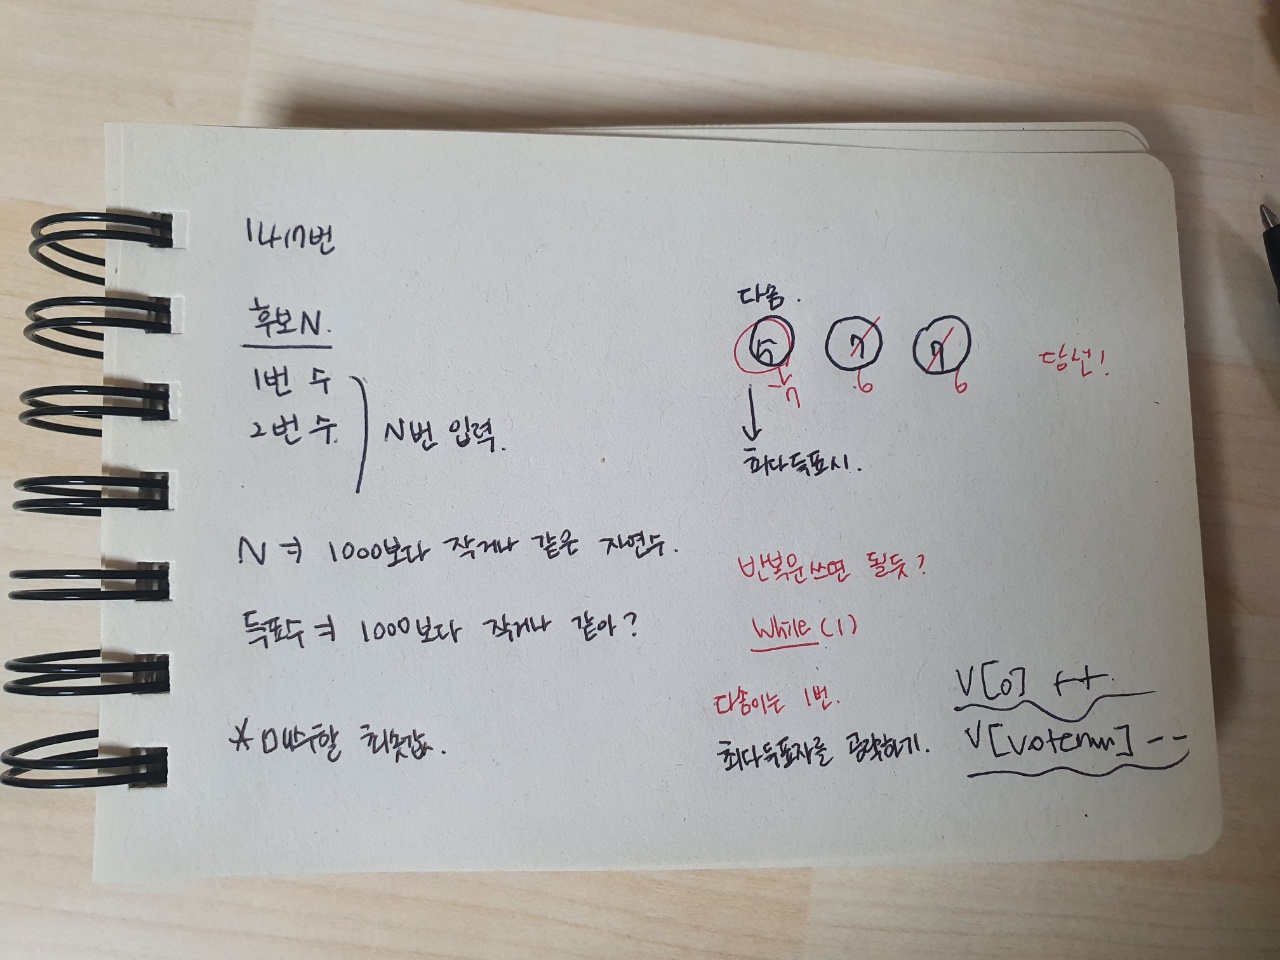 1417번
후보 N.
1번 수
2번 수.
N번 입력.
N 은 1000보다 작거나 같은 자연수.
득표수 은 1000보다 작거나 같아?
* 매수할 최솟값.
다솜.
5 7 7
7 6 6
당선!
최다득표시.
반복문쓰면 될듯?
while(1)
다솜이는 1번.
최다득표자를 공략하기.
V[0] ++.
V[votenum] --